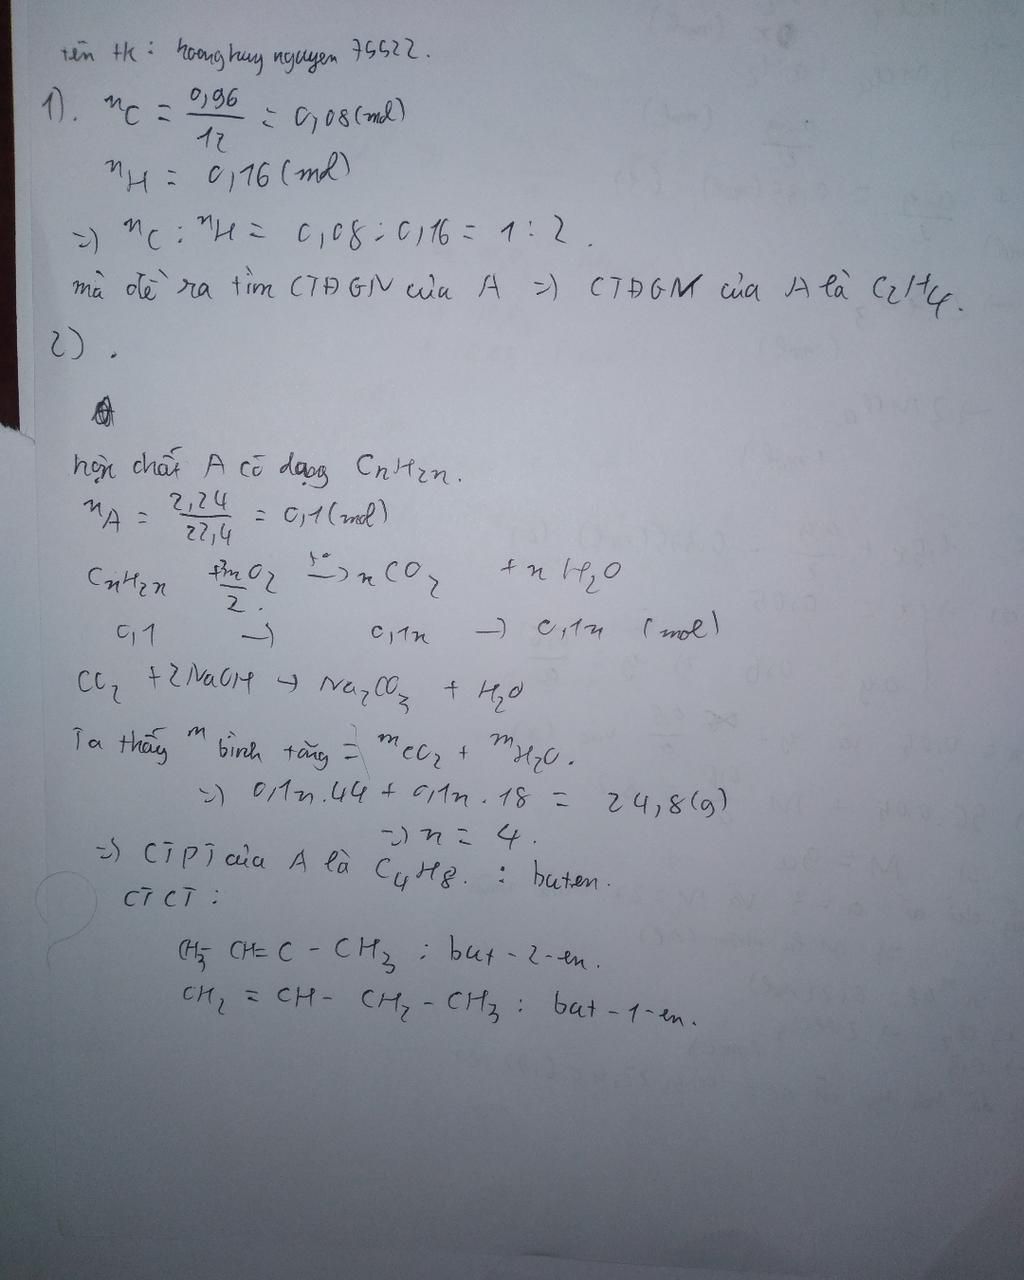 tên tk: hoonghuy nguyen 75522.
1). nC = 0,96/12 = 0,08 (mol)
nH = 0,16 (mol)
=) nC : nH = 0,08 : 0,16 = 1 : 2.
mà đề ra tìm CTĐGN của A =) CTĐGN của A là C2H4.
2).
hợp chất A có dạng CnH2n.
nA = 2,24/22,4 = 0,1 (mol)
CnH2n + 3n/2 O2 t°→ nCO2 + nH2O
0,1 → 0,1n → 0,1n (mol)
CO2 + 2NaOH → Na2CO3 + H2O
Ta thấy m bình tăng = mCO2 + mH2O.
=) 0,1n.44 + 0,1n.18 = 24,8 (g)
=) n = 4.
=) CTPT của A là C4H8. : buten.
CTCT:
CH3- CH= C - CH3 : but-2-en.
CH2 = CH - CH2 - CH3 : but-1-en.